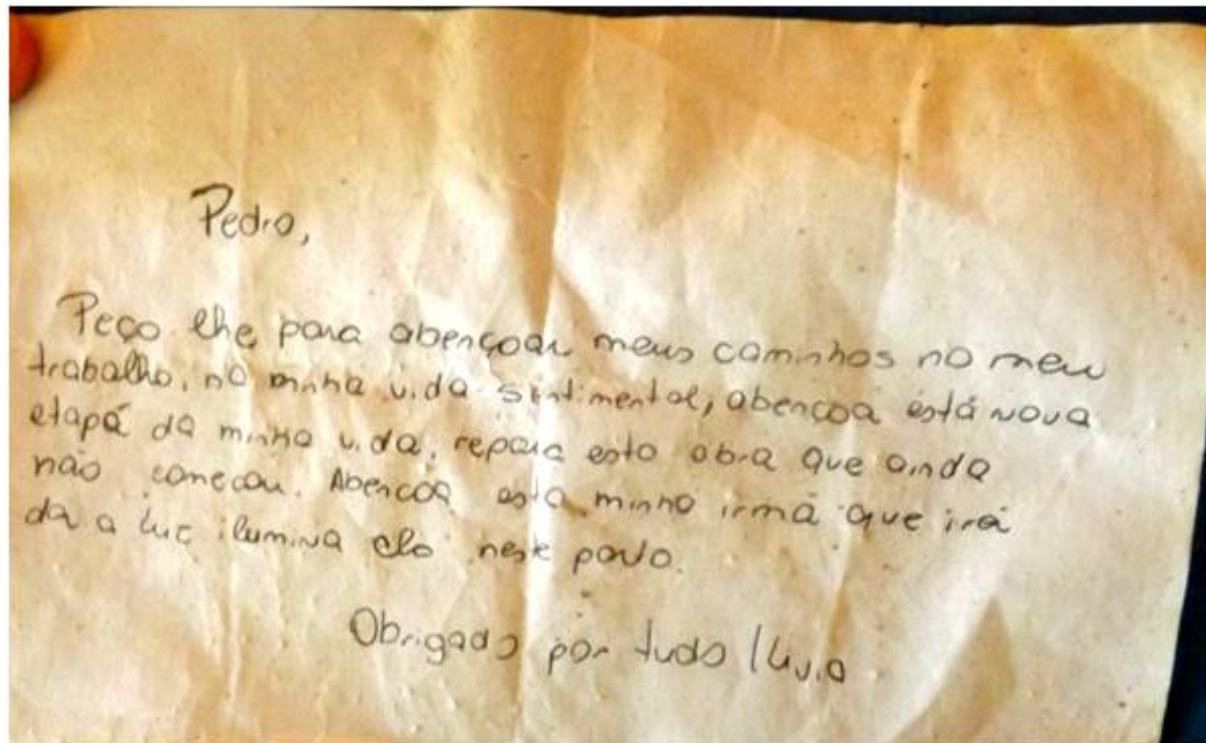 Pedro,
Peço lhe para abençoar meus caminhos no meu
trabalho, na minha vida sentimental, abençoa está nova
etapá da minha vida, repara esta obra que ainda
não começou. Abençoa esta minha irmã que irá
da a luz ilumina ela neste parto.
Obrigado por tudo